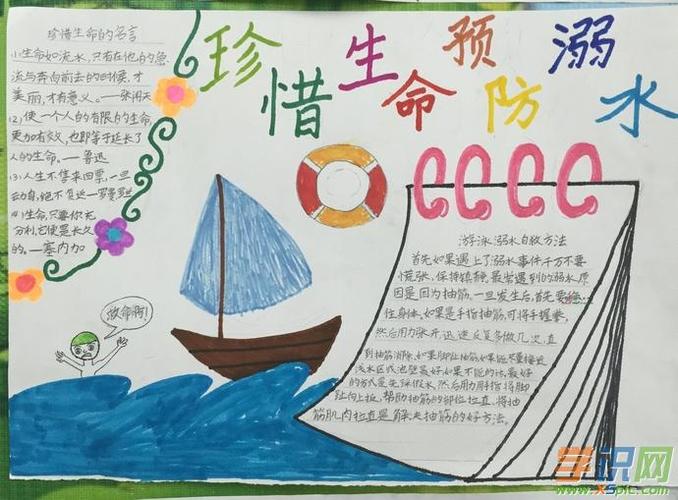 珍惜生命预防溺水
珍惜生命的名言
(1)生命如流水,只有在他的急
流与奔向前去的时候,才
美丽,才有意义。——张闻天
(2)使一个人的有限的生命,
更加有效,也即等于延长了
人的生命。——鲁迅
(3)人生不售来回票,一旦
动身,绝不复返—罗曼罗兰
(4)生命,只要你充
分利,它便是长久
的。—塞内加
救命啊!
游泳溺水自救方法
首先如果遇上了溺水事件千万不要
慌张,保持镇静,最常遇到的溺水原
因是因为抽筋。一旦发生后,首先要
住身体,如果是手指抽筋,可将手握拳,
然后用力张开,迅速反复多做几次,直
到抽筋消除,如果脚趾抽筋,如果能尽量接近
浅水区或池壁最好,如果不能的话,最好
的方式是先深假水,然后用力用手指将脚
趾向上扳,帮助抽筋的部位拉直,将抽
筋肌肉拉直是解决抽筋的好方法。
学识网
www.xspic.com